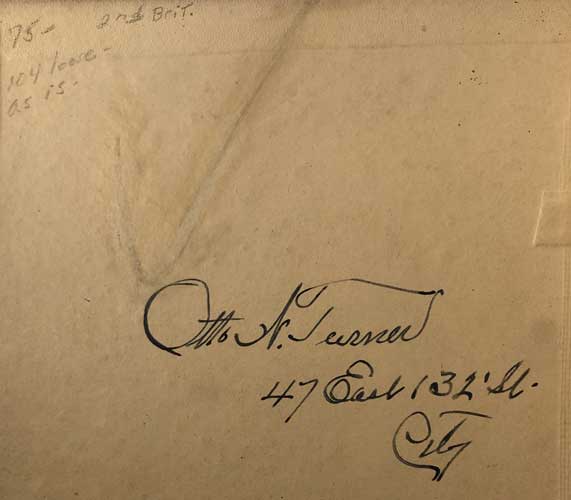 75- 2nd Brit.
104 loose-
as is-
Otto N. Turner
47 East 132' St.
City